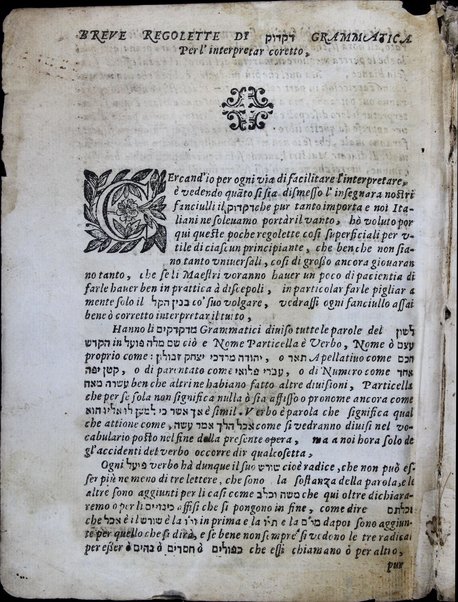 BREVE REGOLETTE DI דקדוק GRAMMATICA
Per l'interpretar coretto,
CErcand'io per ogni via di facilitare l'interpretare,
è vedendo quāto si sia dismesso l'insegnara nostri
fanciulli il דקדוק che pur tanto importa e noi Ita-
liani ne soleuamo portar il vanto, hò voluto por
qui queste poche regolette cosi superficiali per v-
tile di ciascun principiante, che benche non sia-
no tanto vniuersali, cosi di grosso ancora giouaran
no tanto, che se li Maestri voranno hauer un poco di pacientia di
farle hauer ben in prattica à discepoli, in particolar farle pigliar a
mente solo il בנין הקל co' suo volgare, vedrassi ogni fanciullo assai
bene ò corretto interpretar il tuito,
Hanno li מדקדקים Grammatici diuiso tutte le parole del לשון
הקדש in שם מלה פועל ciò è Nome Particella è Verbo, Nome ò עצם
proprio come: יהודה מרדכי יצחק זבולון, ò תאר Apellatiuo come חכם
קטן יפה, ò di parentato come עברי פלואי, ò di Numero come אחד
עשרה מאה ben che altri ne habiano fatto altre diuisioni, Particella
che per se sola non significa nulla ò sia affisso o pronome ancora come
אך אשר כי למען לו אליו הוא è simil. Verbo è parola che significa qual
che attione come אכל הלך אמר עשה, come si vedranno diuisi nel vo-
cabulario posto nel fine della presente opera, ma a noi hora solo de
gl'accidenti del verbo occorre dir qualcosetta.
Ogni פועל verbo hà dunque il suo שורש cioè radice, che non può es-
ser più ne meno di tre lettere, che sono la sostanza della parola, e le
altre sono aggiunti per li casi come משה וכלב che qui oltre dichiara-
remo o per li כינויים affissi che si pongono in fine, come dire וכלתם
che אכל è il שורש e la ו in prima e la תי e la ם dapoi sono aggiun
te per quello che si dirà, e se bene non sempre si vedeno le tre radicai
per esser ò חסרים ò נחים ò כפולים che essi chiamano ò per altro,
pur